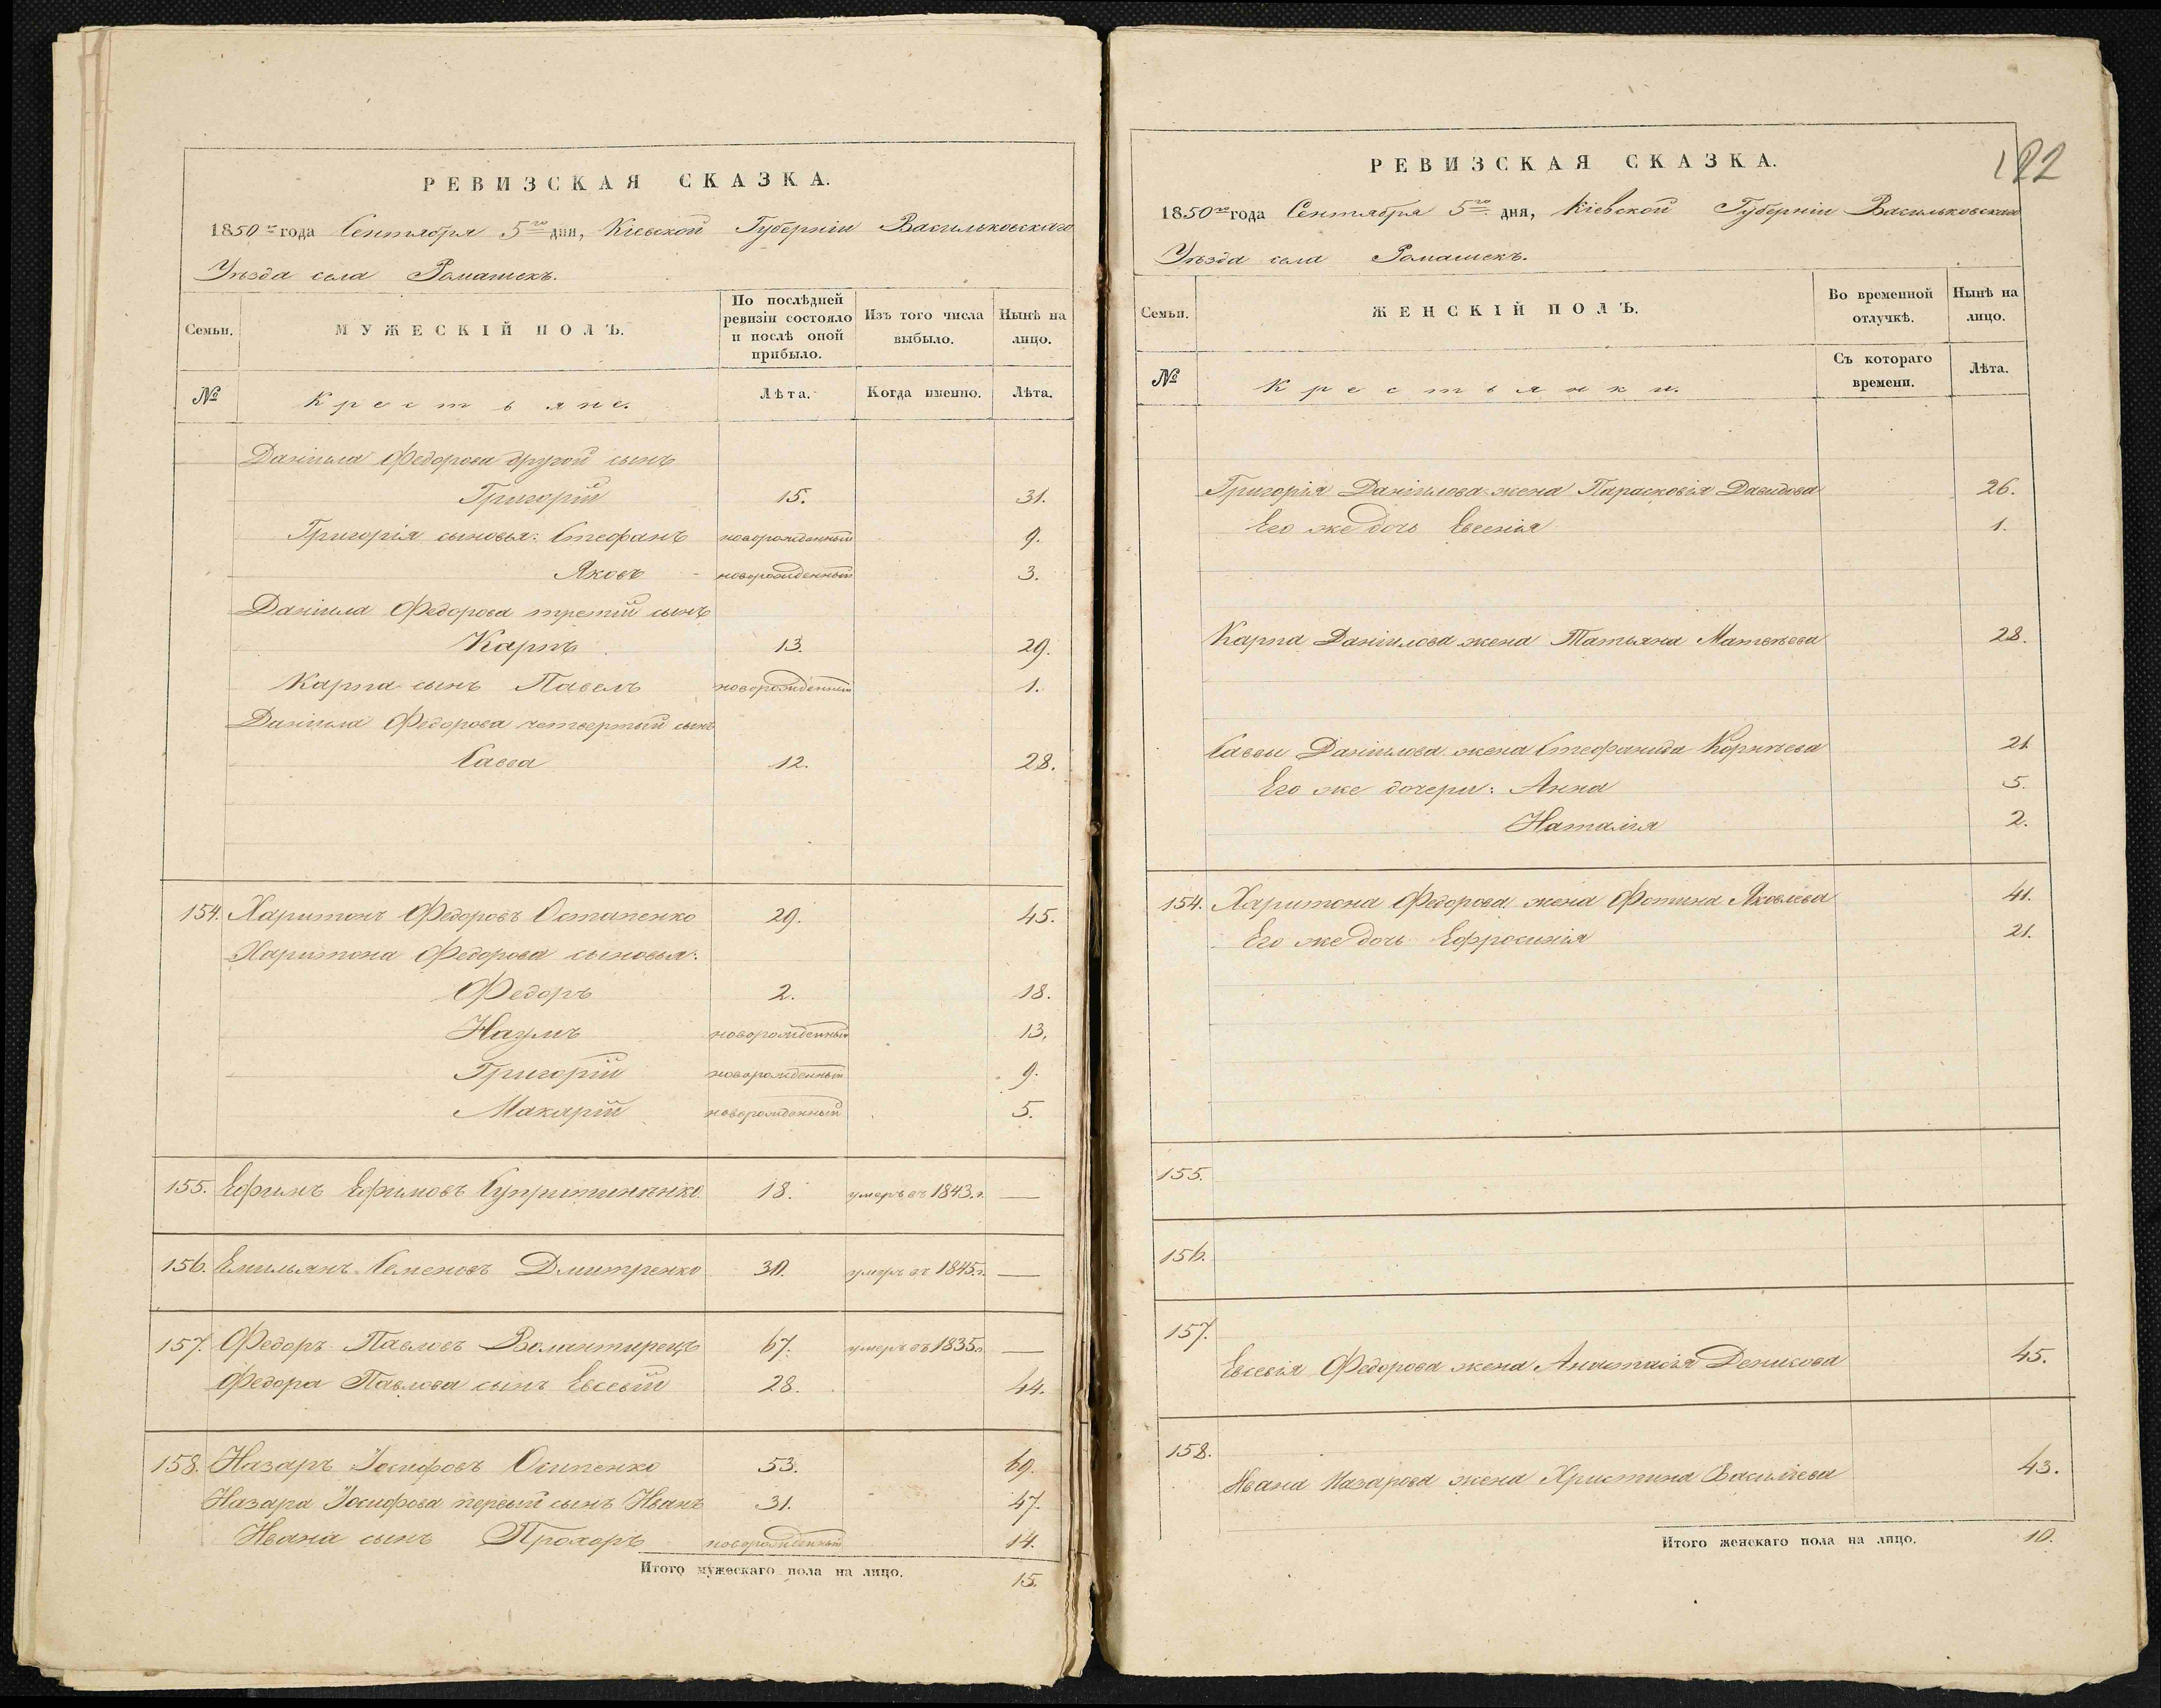 РЕВИЗСКАЯ СКАЗКА.
1850го года Сентября 5го дня, Кіевской Губерніи Васильковскаго
Уѣзда села Ромашекъ.
Семьи.
МУЖЕСКІЙ ПОЛЪ.
По послѣдней ревизіи состояло и послѣ оной прибыло.
Изъ того числа выбыло.
Нынѣ на лицо.
№
Крестьяне.
Лѣта.
Когда именно.
Лѣта.
Даніила Федорова другой сынъ
Григорій 15. 31.
Григорія сыновья: Стефанъ новорожденный 9.
Яковъ новорожденный 3.
Даніила Федорова третій сынъ
Карпъ 13. 29.
Карпа сынъ Павелъ новорожденный 1.
Даніила Федорова четвертый сынъ
Савва 12. 28.
154. Харитонъ Федоровъ Остапенко 29. 45.
Харитона Федорова сыновья:
Федоръ 2. 18.
Наумъ новорожденный 13.
Григорій новорожденный 9.
Макарій новорожденный 5.
155. Ефимъ Ефимовъ 18. умеръ въ 1843.г. —
156. Емельянъ Семеновъ Дмитренко 30. умеръ въ 1845.г. —
157. Федоръ Павловъ Волантирецъ 67. умеръ въ 1835.г. —
Федора Павлова сынъ Евсевій 28. 44.
158. Назаръ Іосифовъ Осипенко 53. 69.
Назара Іосифова первый сынъ Иванъ 31. 47.
Ивана сынъ Прохоръ новорожденный 14.
Итого мужескаго пола на лицо. 15.
122
РЕВИЗСКАЯ СКАЗКА.
1850го года Сентября 5го дня, Кіевской Губерніи Васильковскаго
Уѣзда села Ромашекъ.
Семьи.
ЖЕНСКІЙ ПОЛЪ.
Во временной отлучкѣ.
Нынѣ на лицо.
№
Крестьянки.
Съ котораго времени.
Лѣта.
Григорія Даніилова жена Парасковія Давидова 26.
Его же дочь Евгенія 1.
Карпа Даніилова жена Татьяна Матвѣева 28.
Саввы Даніилова жена Стефанида Корнѣева 21.
Его же дочери: Анна 5.
Наталія 2.
154. Харитона Федорова жена Фотина Яковлева 41.
Его же дочь Ефросинія 21.
155.
156.
157.
Евсевія Федорова жена Анастасія Денисова 45.
158.
Ивана Назарова жена Христина Василіева 43.
Итого женскаго пола на лицо. 10.